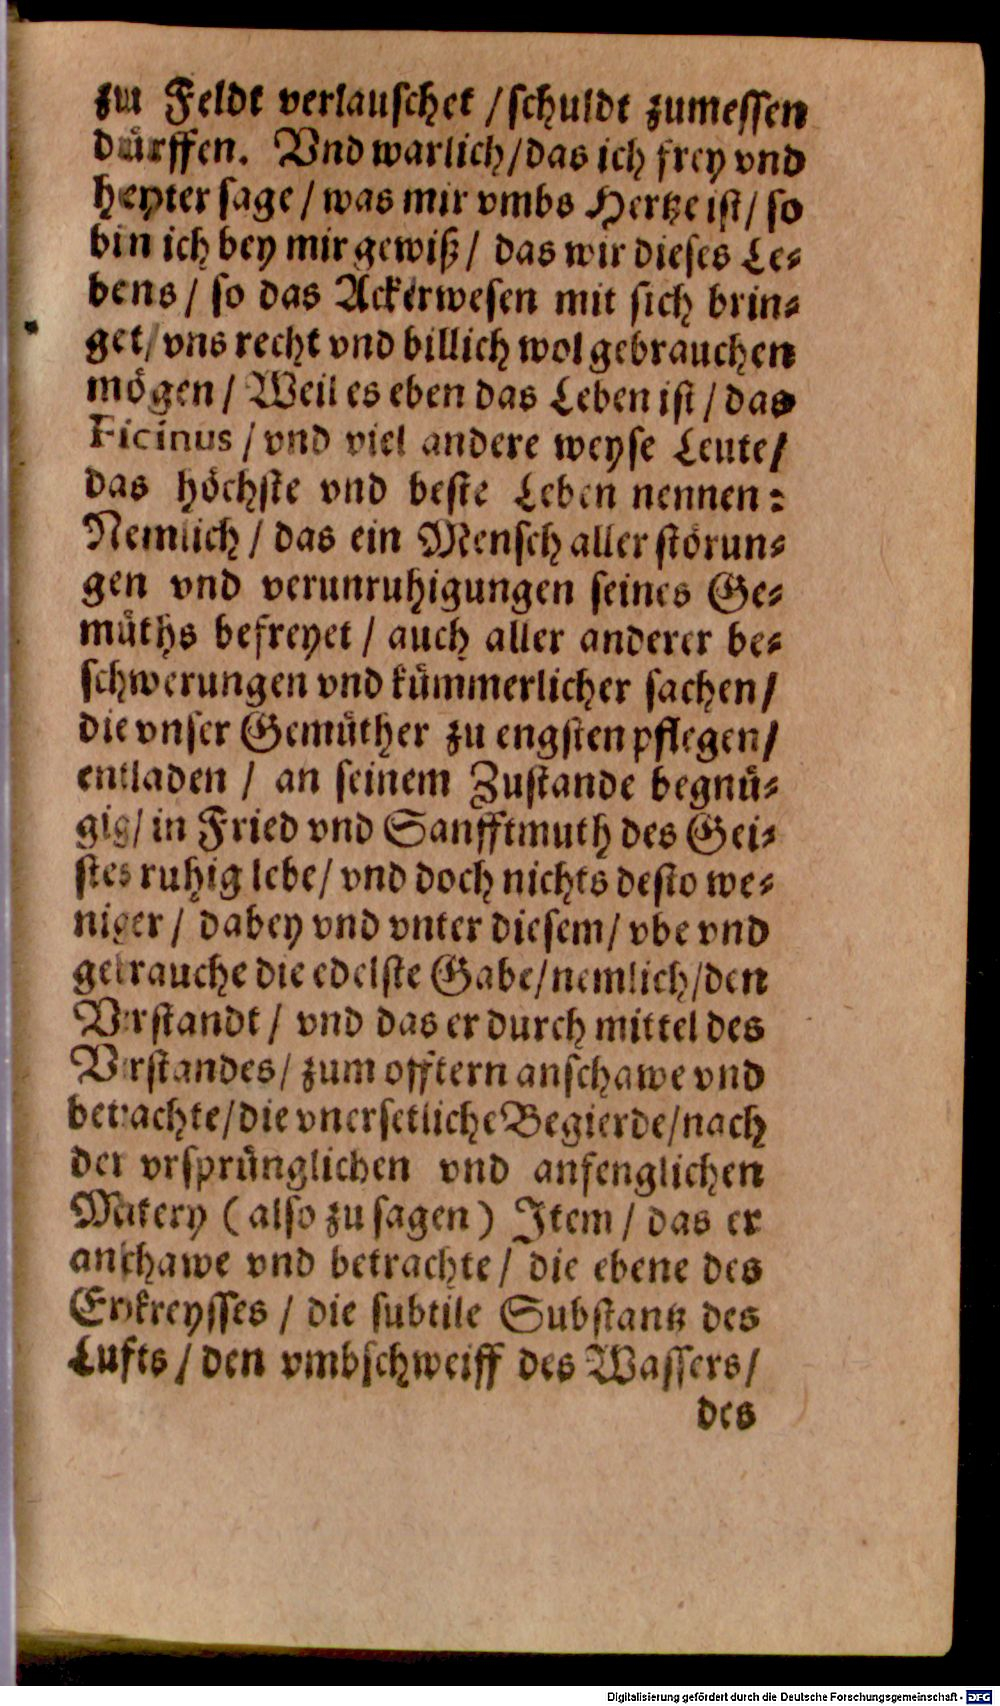 zur Feldt verlauschet / schuldt zumessen
dürffen. Vnd warlich / das ich frey vnd
heyter sage / was mir vmbs Hertze ist / so
bin ich bey mir gewiß / das wir dieses Le-
bens / so das Ackerwesen mit sich brin-
get / vns recht vnd billich wol gebrauchen
mögen / Weil es eben das Leben ist / das
Ficinus / vnd viel andere weyse Leute /
das höchste vnd beste Leben nennen:
Nemlich / das ein Mensch aller störun-
gen vnd verunruhigungen seines Ge-
müths befreyet / auch aller anderer be-
schwerungen vnd kümmerlicher sachen /
die vnser Gemüther zu engsten pflegen /
entladen / an seinem Zustande begnü-
gig / in Fried vnd Sanfftmuth des Gei-
stes ruhig lebe / vnd doch nichts desto we-
niger / dabey vnd vnter diesem / vbe vnd
gebrauche die edelste Gabe / nemlich / den
Verstandt / vnd das er durch mittel des
Verstandes / zum offtern anschawe vnd
betrachte / die vnersetliche Begierde / nach
der vrsprünglichen vnd anfenglichen
Matery ( also zu sagen ) Item / das er
anschawe vnd betrachte / die ebene des
Erdkreysses / die subtile Substantz des
Lufts / den vmbschweiff des Wassers /
des
Digitalisierung gefördert durch die Deutsche Forschungsgemeinschaft - DFG